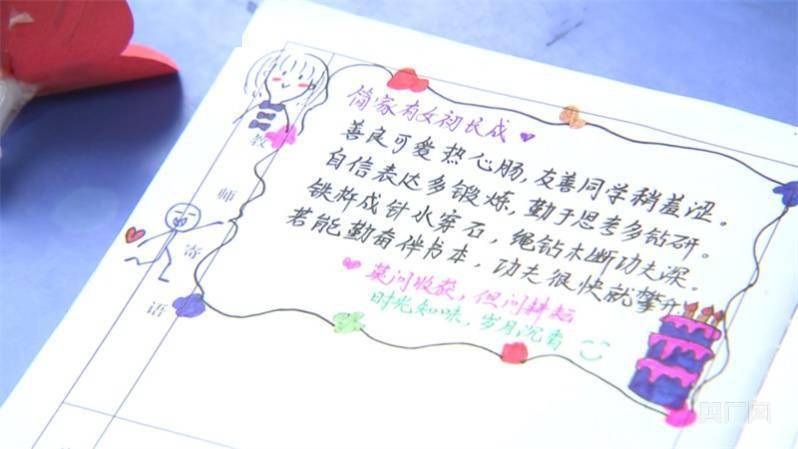 简家有女初长成
善良可爱热心肠，友善同学稍羞涩。
自信表达多锻炼，勤于思考多钻研。
铁杵成针水穿石，绳钻木断功夫深。
若能勤奋伴书本，功夫很快就攀升
莫问收获，但问耕耘
时光知味，岁月沉香
教师寄语